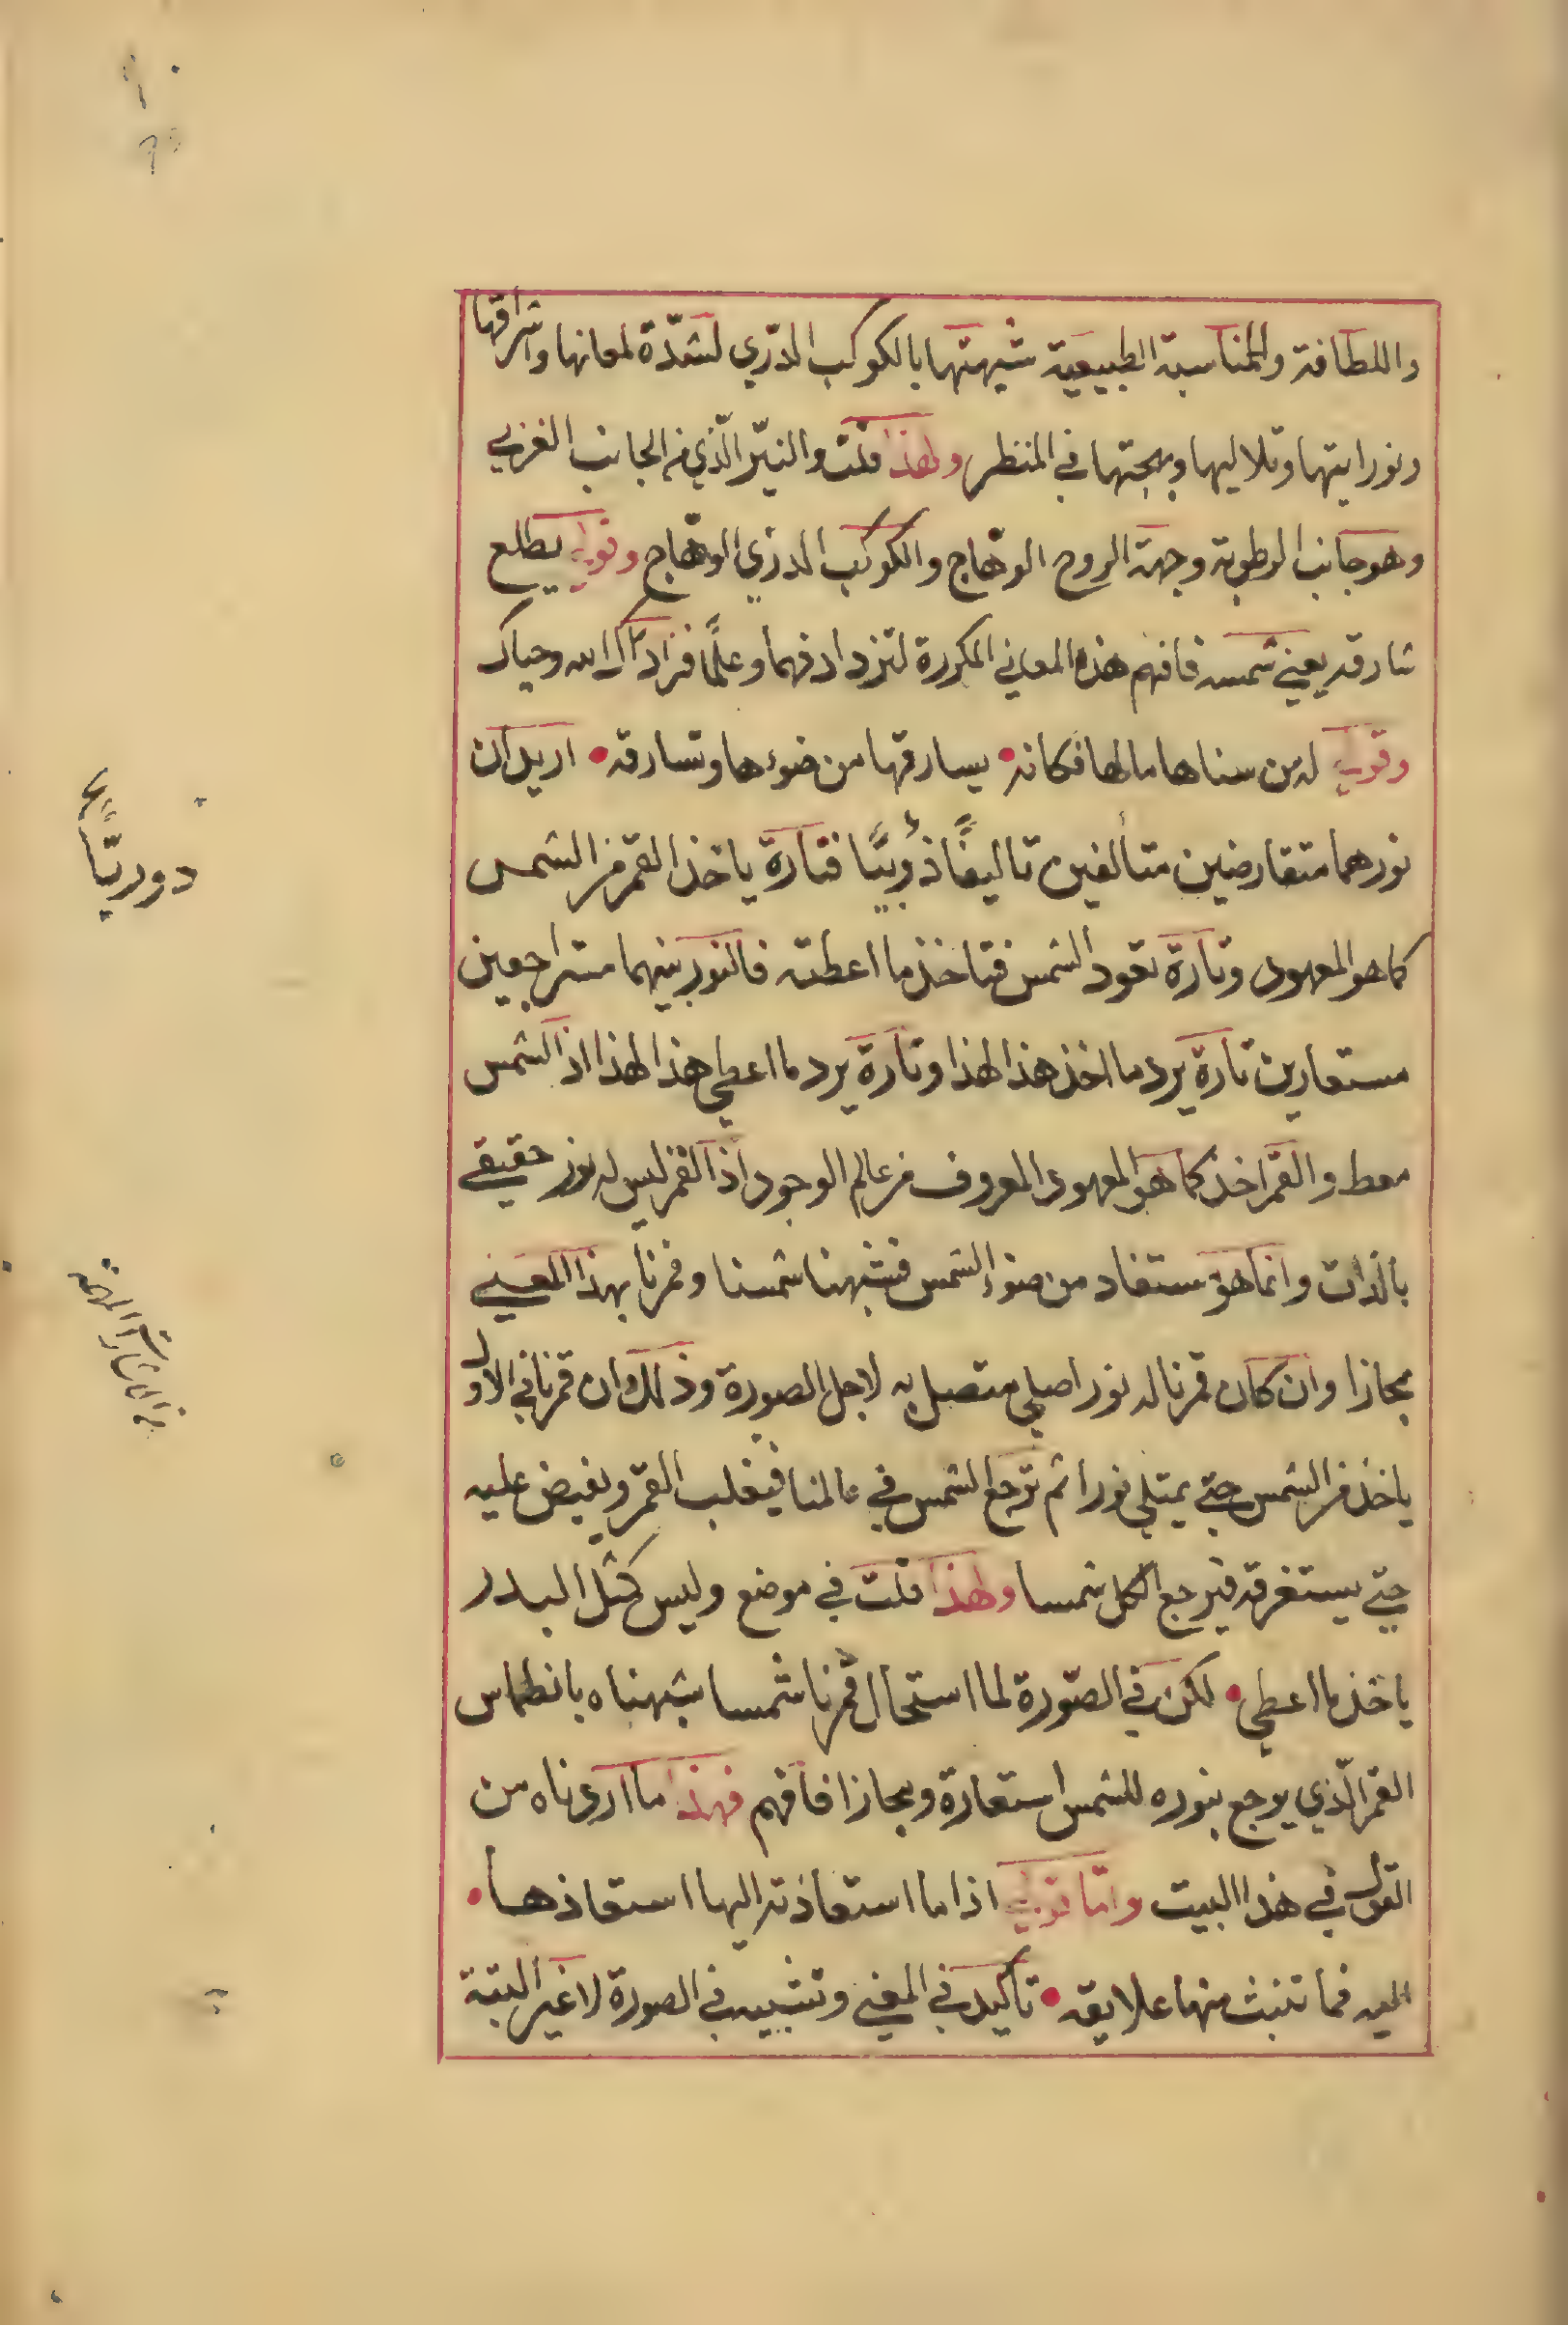 واللطافة والمناسبة الطبيعية شبهتها بالكوكب الدرّي لشدّة لمعانها واشراقها
ونورانيتها وتلاليها وبهجتها في المنظر ولهذا قلت والنيّر الّذي من الجانب الغربي
وهو جانب الرطوبة وجهة الروح الوهّاج والكوكب الدرّي الوهّاج وقولي يطلع
شارقه يعني شمسه فافهم هذه المعاني المكررة لتزداد فهما وعلمًا فزادك الله وحياك
وقولي له من سناها ما لها فكانه • يسارقها من ضوءها وتسارقه • اريد ان
نورهما متقارضين متألفين تاليفًا ذؤبيًّا فتارة ياخذ القمر من الشمس
كما هو المعهود وتارة تعود الشمس فتاخذ ما اعطته فالنور بينهما متراجعين
مستعارين تارة يرد ما اخذ هذا لهذا وتارة يرد ما اعطي هذا لهذا اذ الشمس
معط والقمر اخذ كما هو المعهود المعروف من عالم الوجود اذ القمر ليس له نور حقيقي
بالذات وانما هو مستفاد من ضوء الشمس فشبهنا شمسنا وقمرنا بهذا المعني
مجازا وان كان قمرنا له نور اصلي متصل به لاجل الصورة وذلك ان قمرنا في الاول
ياخذ من الشمس حتي يمتلي نورا ثم ترجع الشمس في عالمنا فيغلب القمر ويفيض عليه
حتي يستغرقه فيرجع الكل شمسا ولهذا قلت في موضع وليس كمثل البدر
ياخذ ما اعطي • لكن في الصّورة لما استحال قمرنا شمسا شبهناه بانطماس
القمر الّذي يرجع بنوره للشمس استعارة ومجازا فافهم فهذا ما اردناه من
القول في هذا البيت وامّا قولي اذا ما استعاذته اليها استعاذها •
اليه فما تنبث منها علايقه • تأكيد في المعني وتشبيب في الصورة لا غير البتة
دوريًّا